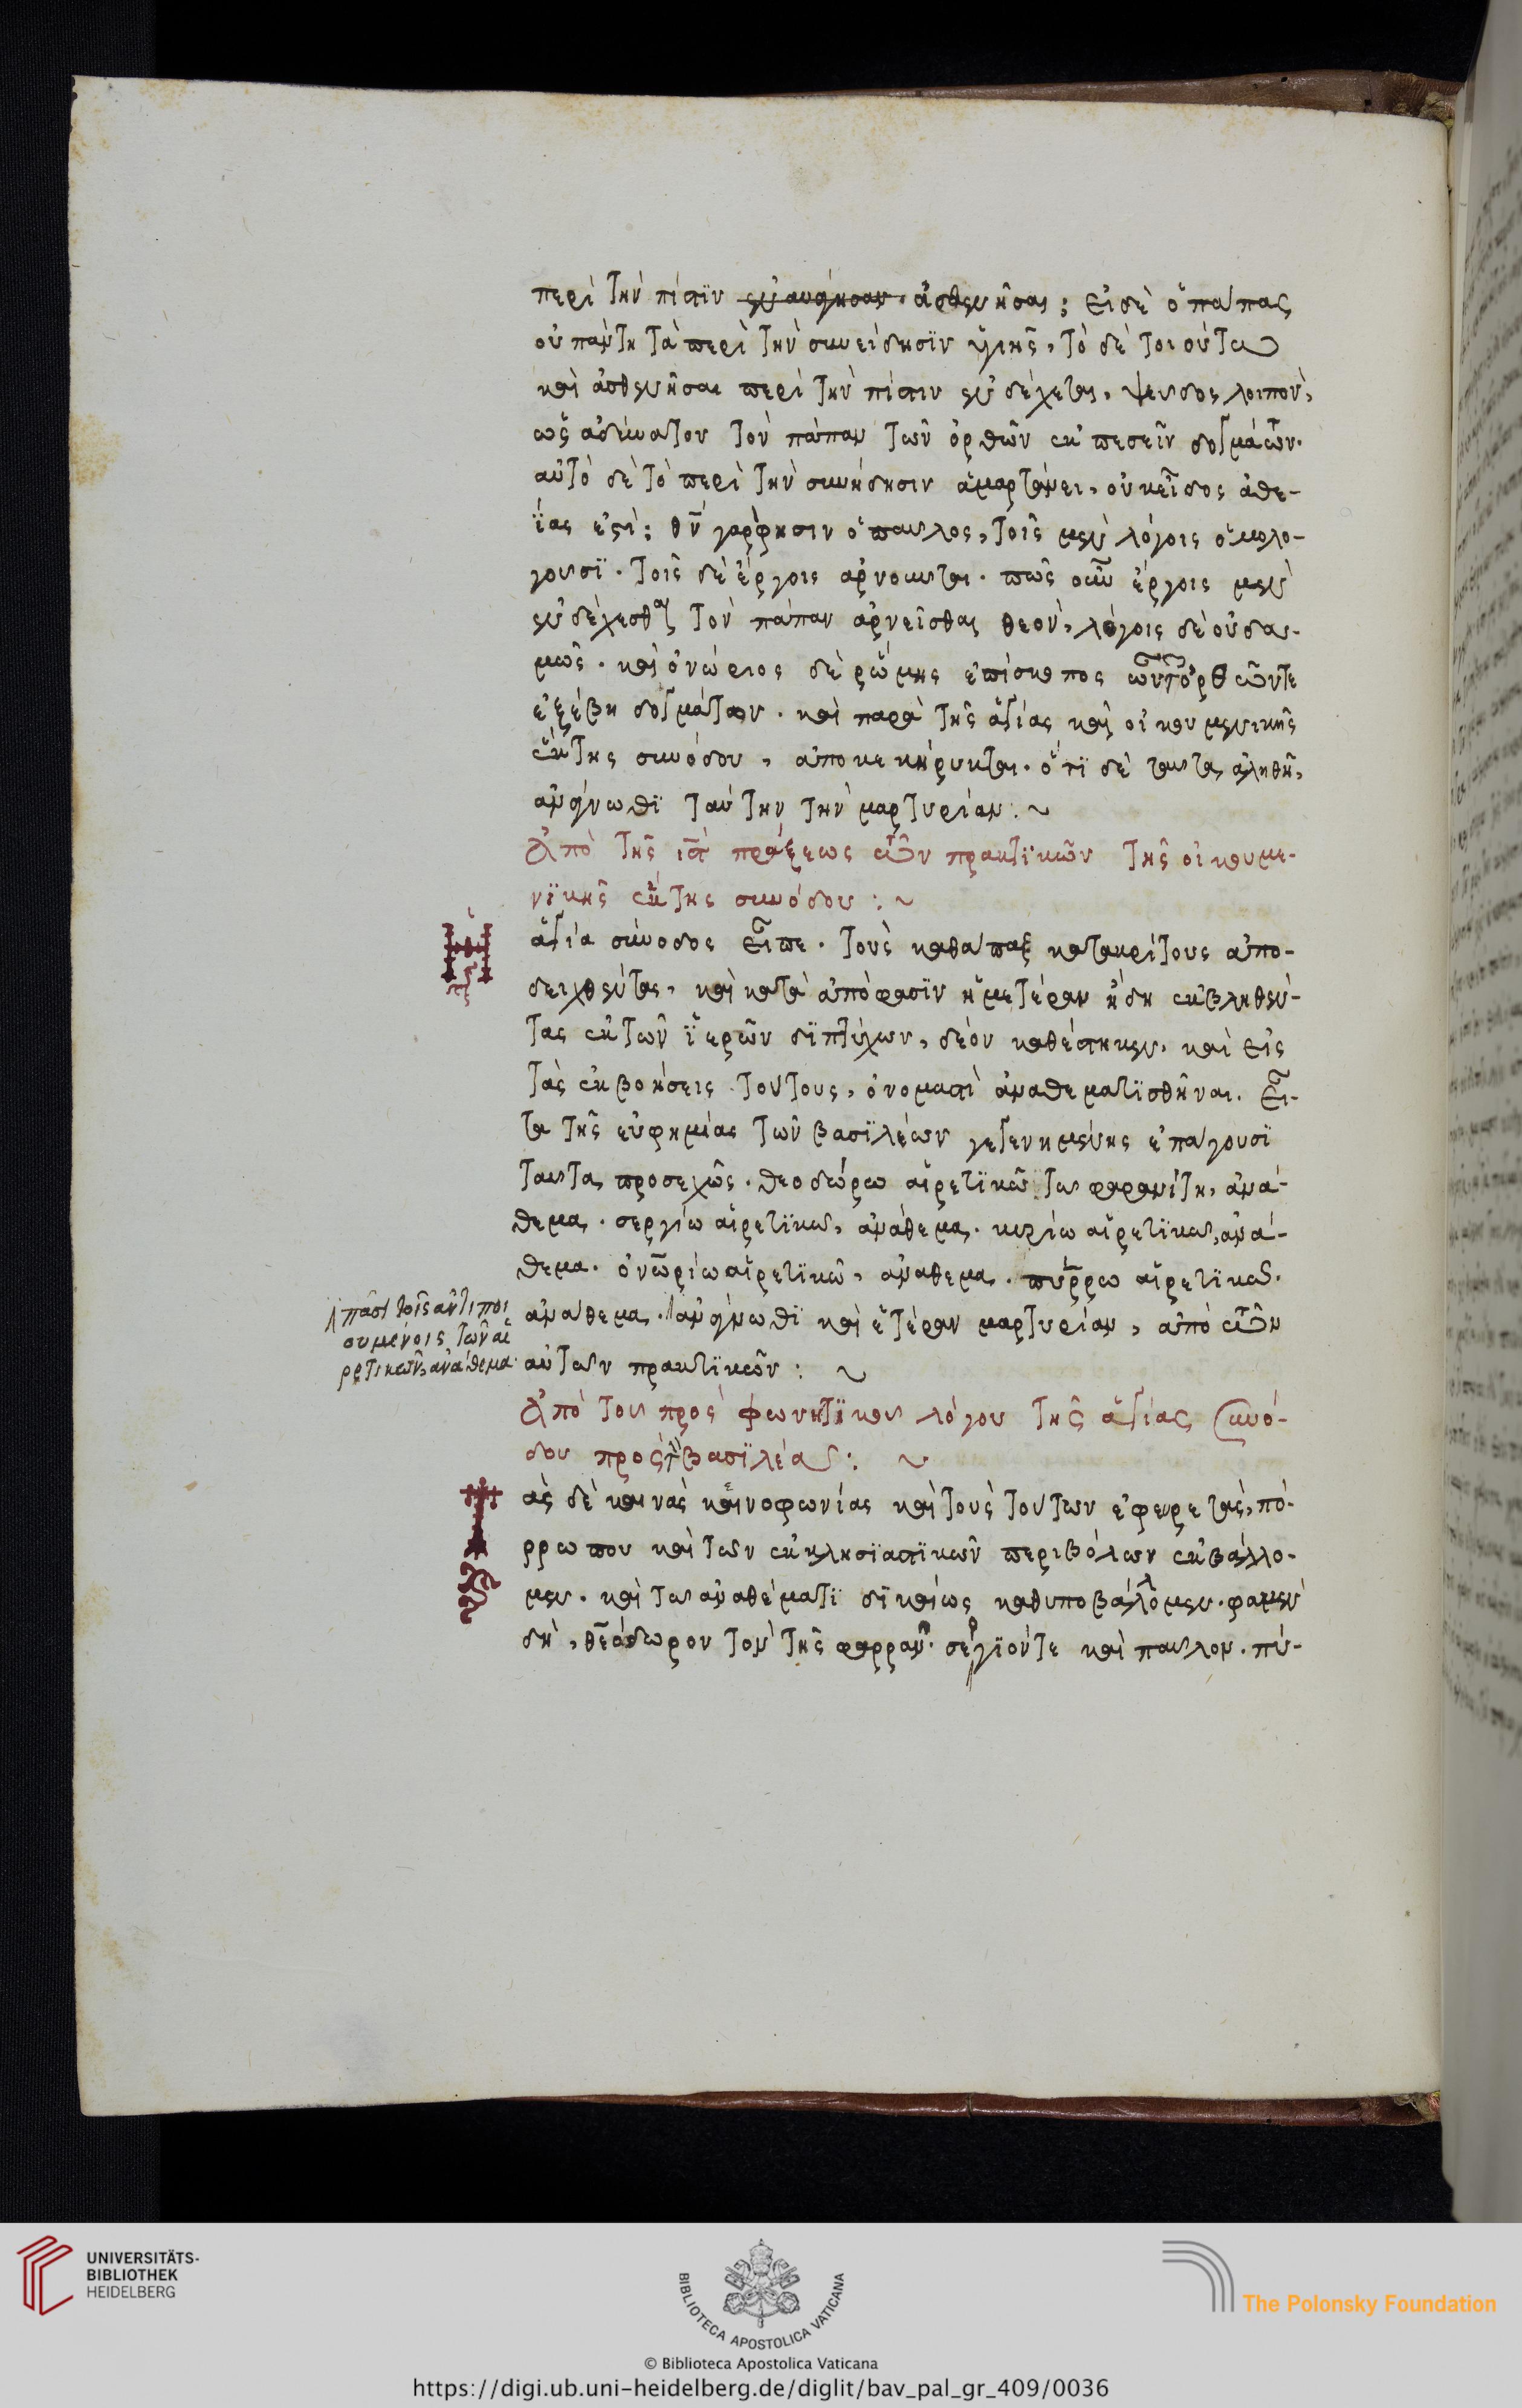 περὶ τὴν πίστϊν ἐναυάγησαν· ἀσθενῆσαι; εἰ δὲ ὁ πάπας
οὐ πάντη τὰ περὶ τὴν συνείδησϊν ὑγιὴς, τὸ δὲ τοιοῦτω
καὶ ἀσθενῆσαι περὶ τὴν πίστιν ἐνδέχεται, ψευδος λοιπὸν,
ὡς ἀδύνατον τὸν πάπαν τῶν ὀρθῶν ἐκπεσεῖν δογμάτων.
αὐτὸ δὲ τὸ περὶ τὴν συνήδησιν ἁμαρτάνει, οὐκ εἶδος ἀθε-
ΐας ἐστὶ; θν̄ γάρ φησιν ὁ παυλος, τοῖς μὲν λόγοις ὁμολο-
γουσϊ. τοῖς δὲ ἔργοις ἀρνουνται. πῶς οὖν ἔργοις μὲν
ἐνδέχεσθαι τὸν πάπαν ἀρνεῖσθαι θεὸν, λόγοις δὲ οὐδα-
μῶς. καὶ ὀνώριος δὲ ῥώμης ἐπίσκοπος ὢν τῶν ὀρθῶν τε
ἐξέβη δογμάτων. καὶ παρὰ τῆς ἁγίας καὶ οἰκουμενικῆς
ἕκτης συνόδου, ἀποκεκήρυκται. ὅτϊ δὲ ταυτα ἀληθῆ,
ἀνάγνωθϊ ταύτην τὴν μαρτυρίαν: ~
Ἀπὸ τῆς ια πράξεως τῶν πρακτϊκῶν τῆς οἰκουμε-
νϊκῆς ἕκτης συνόδου: ~
Ἡ
ἁγία σύνοδος εἶπε. τοὺς καθάπαξ κατακρίτους ἀπο-
δειχθέντας, καὶ κατὰ ἀπόφασϊν ἡμετέραν ἤδη ἐκβληθέν-
τας ἐκ τῶν ϊερῶν δϊπτύχων, δέον καθέστηκεν, καὶ εἰς
τὰς ἐκβοήσεις τούτους, ὀνομαστὶ ἀναθεματϊσθῆναι. εἶ-
τα τῆς εὐφημίας τῶν βασϊλέων γεγενημένης ἐπάγουσϊ
ταυτα προσεχῶς. θεοδώρω αἱρετϊκῶ τω φαρανίτη, ἀνά-
θεμα. σεργίω αἱρετϊκω, ἀνάθεμα. κυρίω αἱρετϊκω, ἀνά-
θεμα. ὀνωρίω αἱρετϊκῶ, ἀνάθεμα. πύρρω αἱρετϊκω.
ἀνάθεμα. ἀνάγνωθϊ καὶ ἑτέραν μαρτυρίαν, ἀπὸ τῶν
πᾶσι τοῖς ἀντιποι
ουμένοις τῶν αἱ
ρετικῶν, ἀνάθεμα.
αὐτων πρακτϊκῶν: ~
Ἀπὸ του προσφωνητϊκου λόγου τῆς ἁγίας συνό-
δου πρὸς τὸν βασϊλέα: ~
Τ
ὰς δὲ καινὰς καινοφωνίας καὶ τοὺς τούτων ἐφευρετὰς, πό-
ρρω που καὶ των ἐκκλησϊαστϊκῶν περιβόλων ἐκβάλλο-
μεν. καὶ τω ἀναθέματϊ δϊκαίως καθυποβάλλομεν. φαμὲν
δὴ, θεόδωρον τὸν τῆς φαρραν. σέργϊόν τε καὶ παυλον. πύ-
UNIVERSITÄTS-
BIBLIOTHEK
HEIDELBERG
BIBLIOTECA APOSTOLICA VATICANA
The Polonsky Foundation
© Biblioteca Apostolica Vaticana
https://digi.ub.uni-heidelberg.de/diglit/bav_pal_gr_409/0036